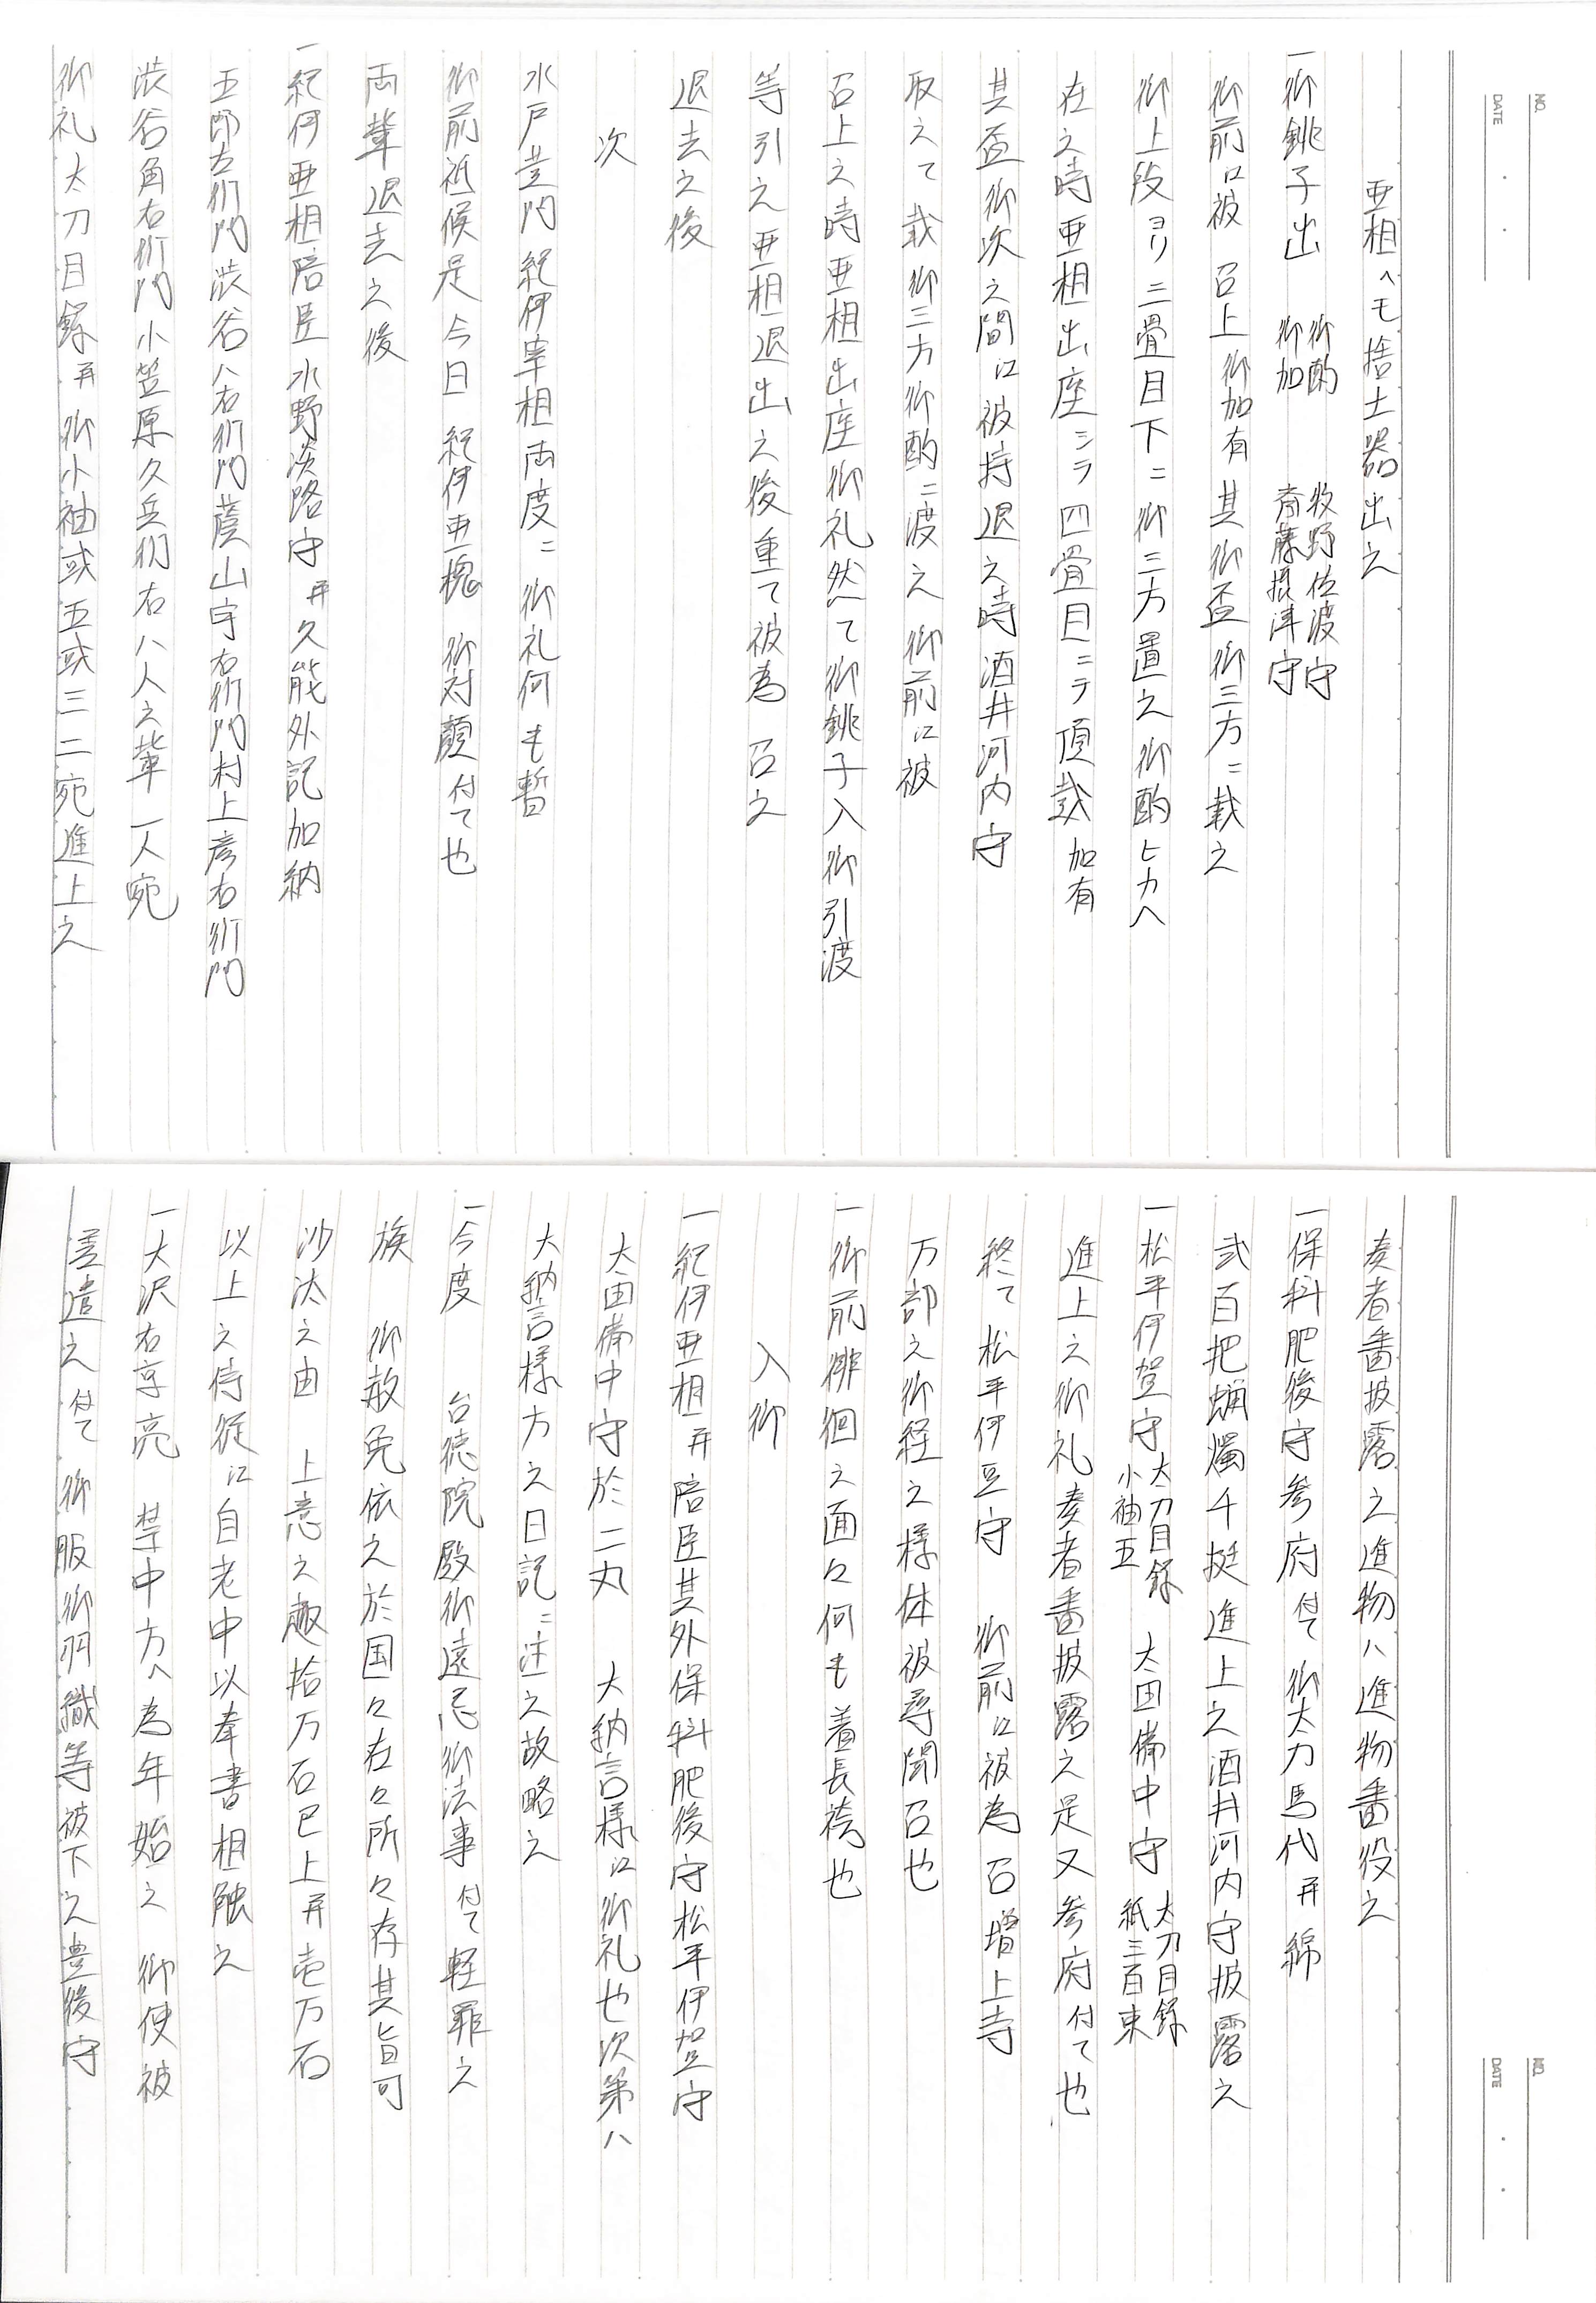 NO.
DATE
亜相ヘモ捨土器出之
一御銚子出 御酌 牧野佐渡守
御加 斎藤摂津守
御前江被 召上御加有其御盃御三方ニ載之
御上段ヨリ二畳目下ニ御三方置之御酌ヒカヘ
在之時亜相出座シテ四畳目ニテ頂戴加有
其盃御次之間江被持退之時酒井河内守
取之て載御三方御酌ニ渡之御前江被
召上之時亜相出座御礼然て御銚子入御引渡
等引之亜相退出之後重て被為 召之
退去之後
次
水戸黄門紀伊宰相両度ニ御礼何も暫
御前祗候是今日紀伊亜槐御対顔付て也
両輩退去之後
一紀伊亜相陪臣水野淡路守并久能外記加納
五郎左衛門渋谷八右衛門薗山宇右衛門村上彦右衛門
渋谷角右衛門小笠原久兵衛右八人之輩一人宛
御礼太刀目録并御小袖或五或三二宛進上之
NO.
DATE
奏者番披露之進物ハ進物番役之
一保科肥後守参府付て御太刀馬代并綿
弐百把蝋燭千挺進上之酒井河内守披露之
一松平伊賀守 太刀目録 小袖五 太田備中守 太刀目録 紙三百束
進上之御礼奏者番披露之是又参府付て也
終て松平伊豆守 御前江被為 召増上寺
万部之御経之様体被尋聞召也
一御前徘徊之面々何も着長袴也
入御
一紀伊亜相并陪臣其外保科肥後守松平伊賀守
太田備中守於二丸 大納言様江御礼也次第ハ
大納言様方之日記ニ注之故略之
一今度 台徳院殿御遠忌御法事付て軽罪之
族 御赦免依之於国々在々所々存其旨可
沙汰之由 上意之趣拾万石已上并壱万石
以上之侍従江自老中以奉書相触之
一大沢右京亮 禁中方ヘ為年始之 御使被
差遣之付て 御服御羽織等被下之豊後守